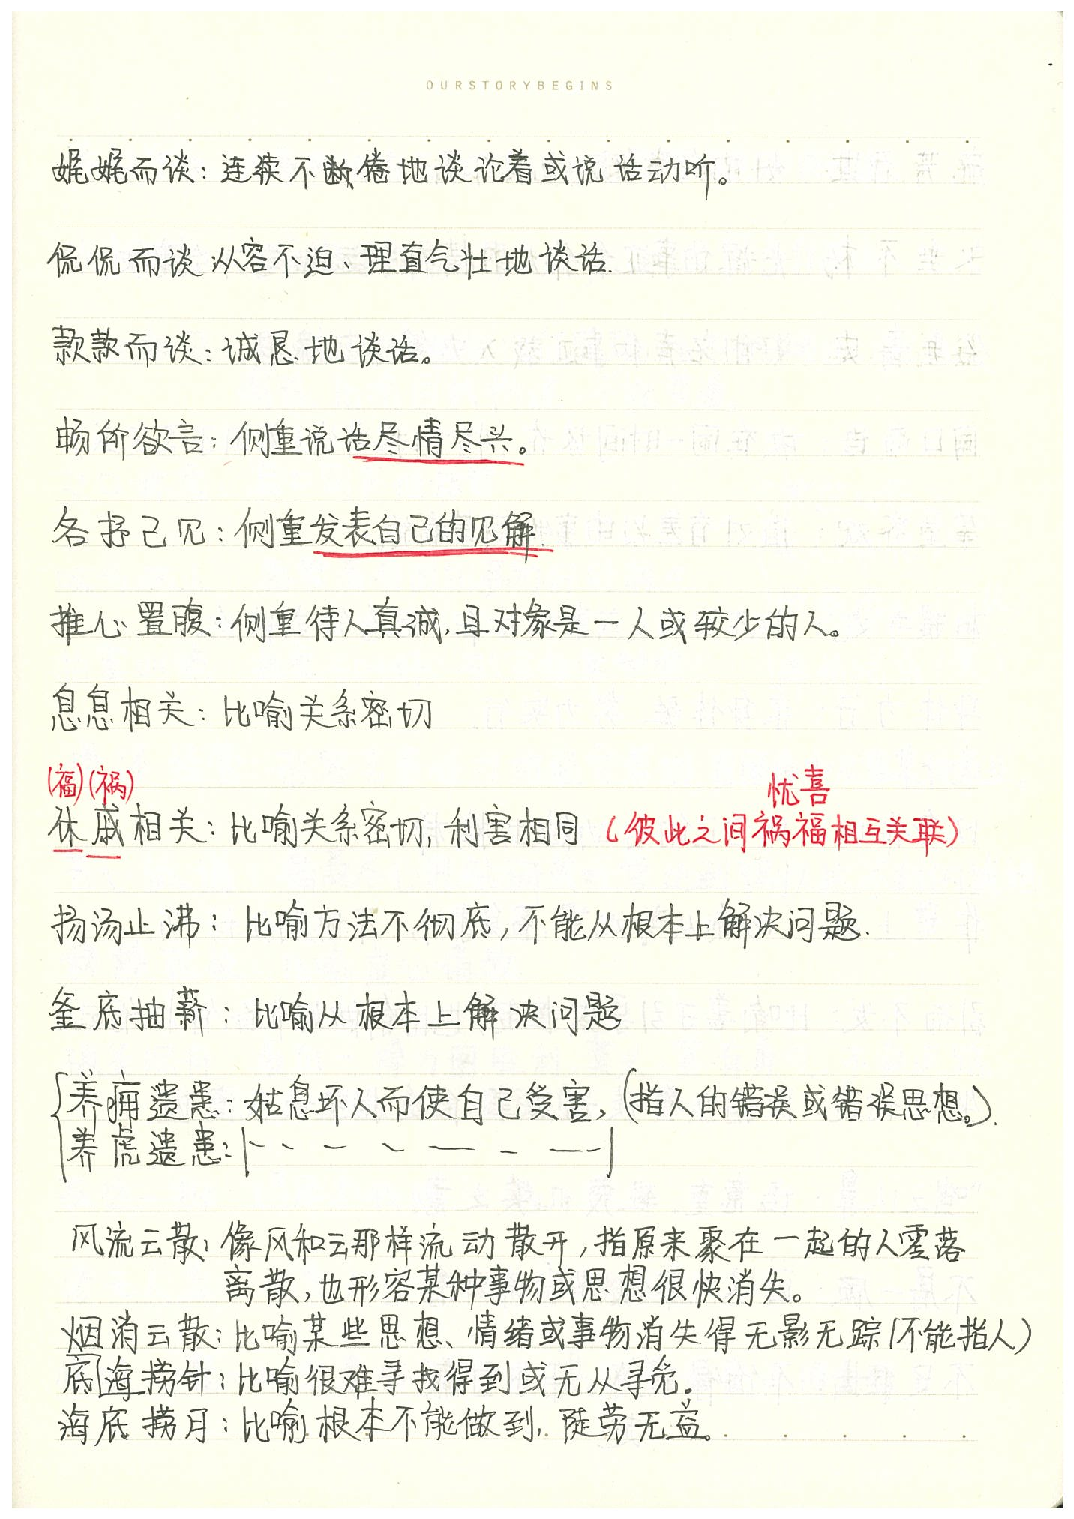 OURSTORYBEGINS
娓娓而谈：连续不断倦地谈论着或说话动听。
侃侃而谈 从容不迫、理直气壮地谈话.
款款而谈：诚恳地谈话。
畅所欲言：侧重说话尽情尽兴。
各抒己见：侧重发表自己的见解.
推心置腹：侧重待人真诚,且对象是一人或较少的人。
息息相关：比喻关系密切
(福)(祸)
忧喜
休戚相关：比喻关系密切,利害相同（彼此之间祸福相互关联）
扬汤止沸：比喻方法不彻底,不能从根本上解决问题.
釜底抽薪：比喻从根本上解决问题
养痈遗患：姑息坏人而使自己受害,(指人的错误或错误思想。).
养虎遗患：
风流云散：像风和云那样流动散开,指原来聚在一起的人零落
离散,也形容某种事物或思想很快消失。
烟消云散：比喻某些思想、情绪或事物消失得无影无踪(不能指人)
底海捞针：比喻很难寻找得到或无从寻觅。
海底捞月：比喻根本不能做到.徒劳无益。